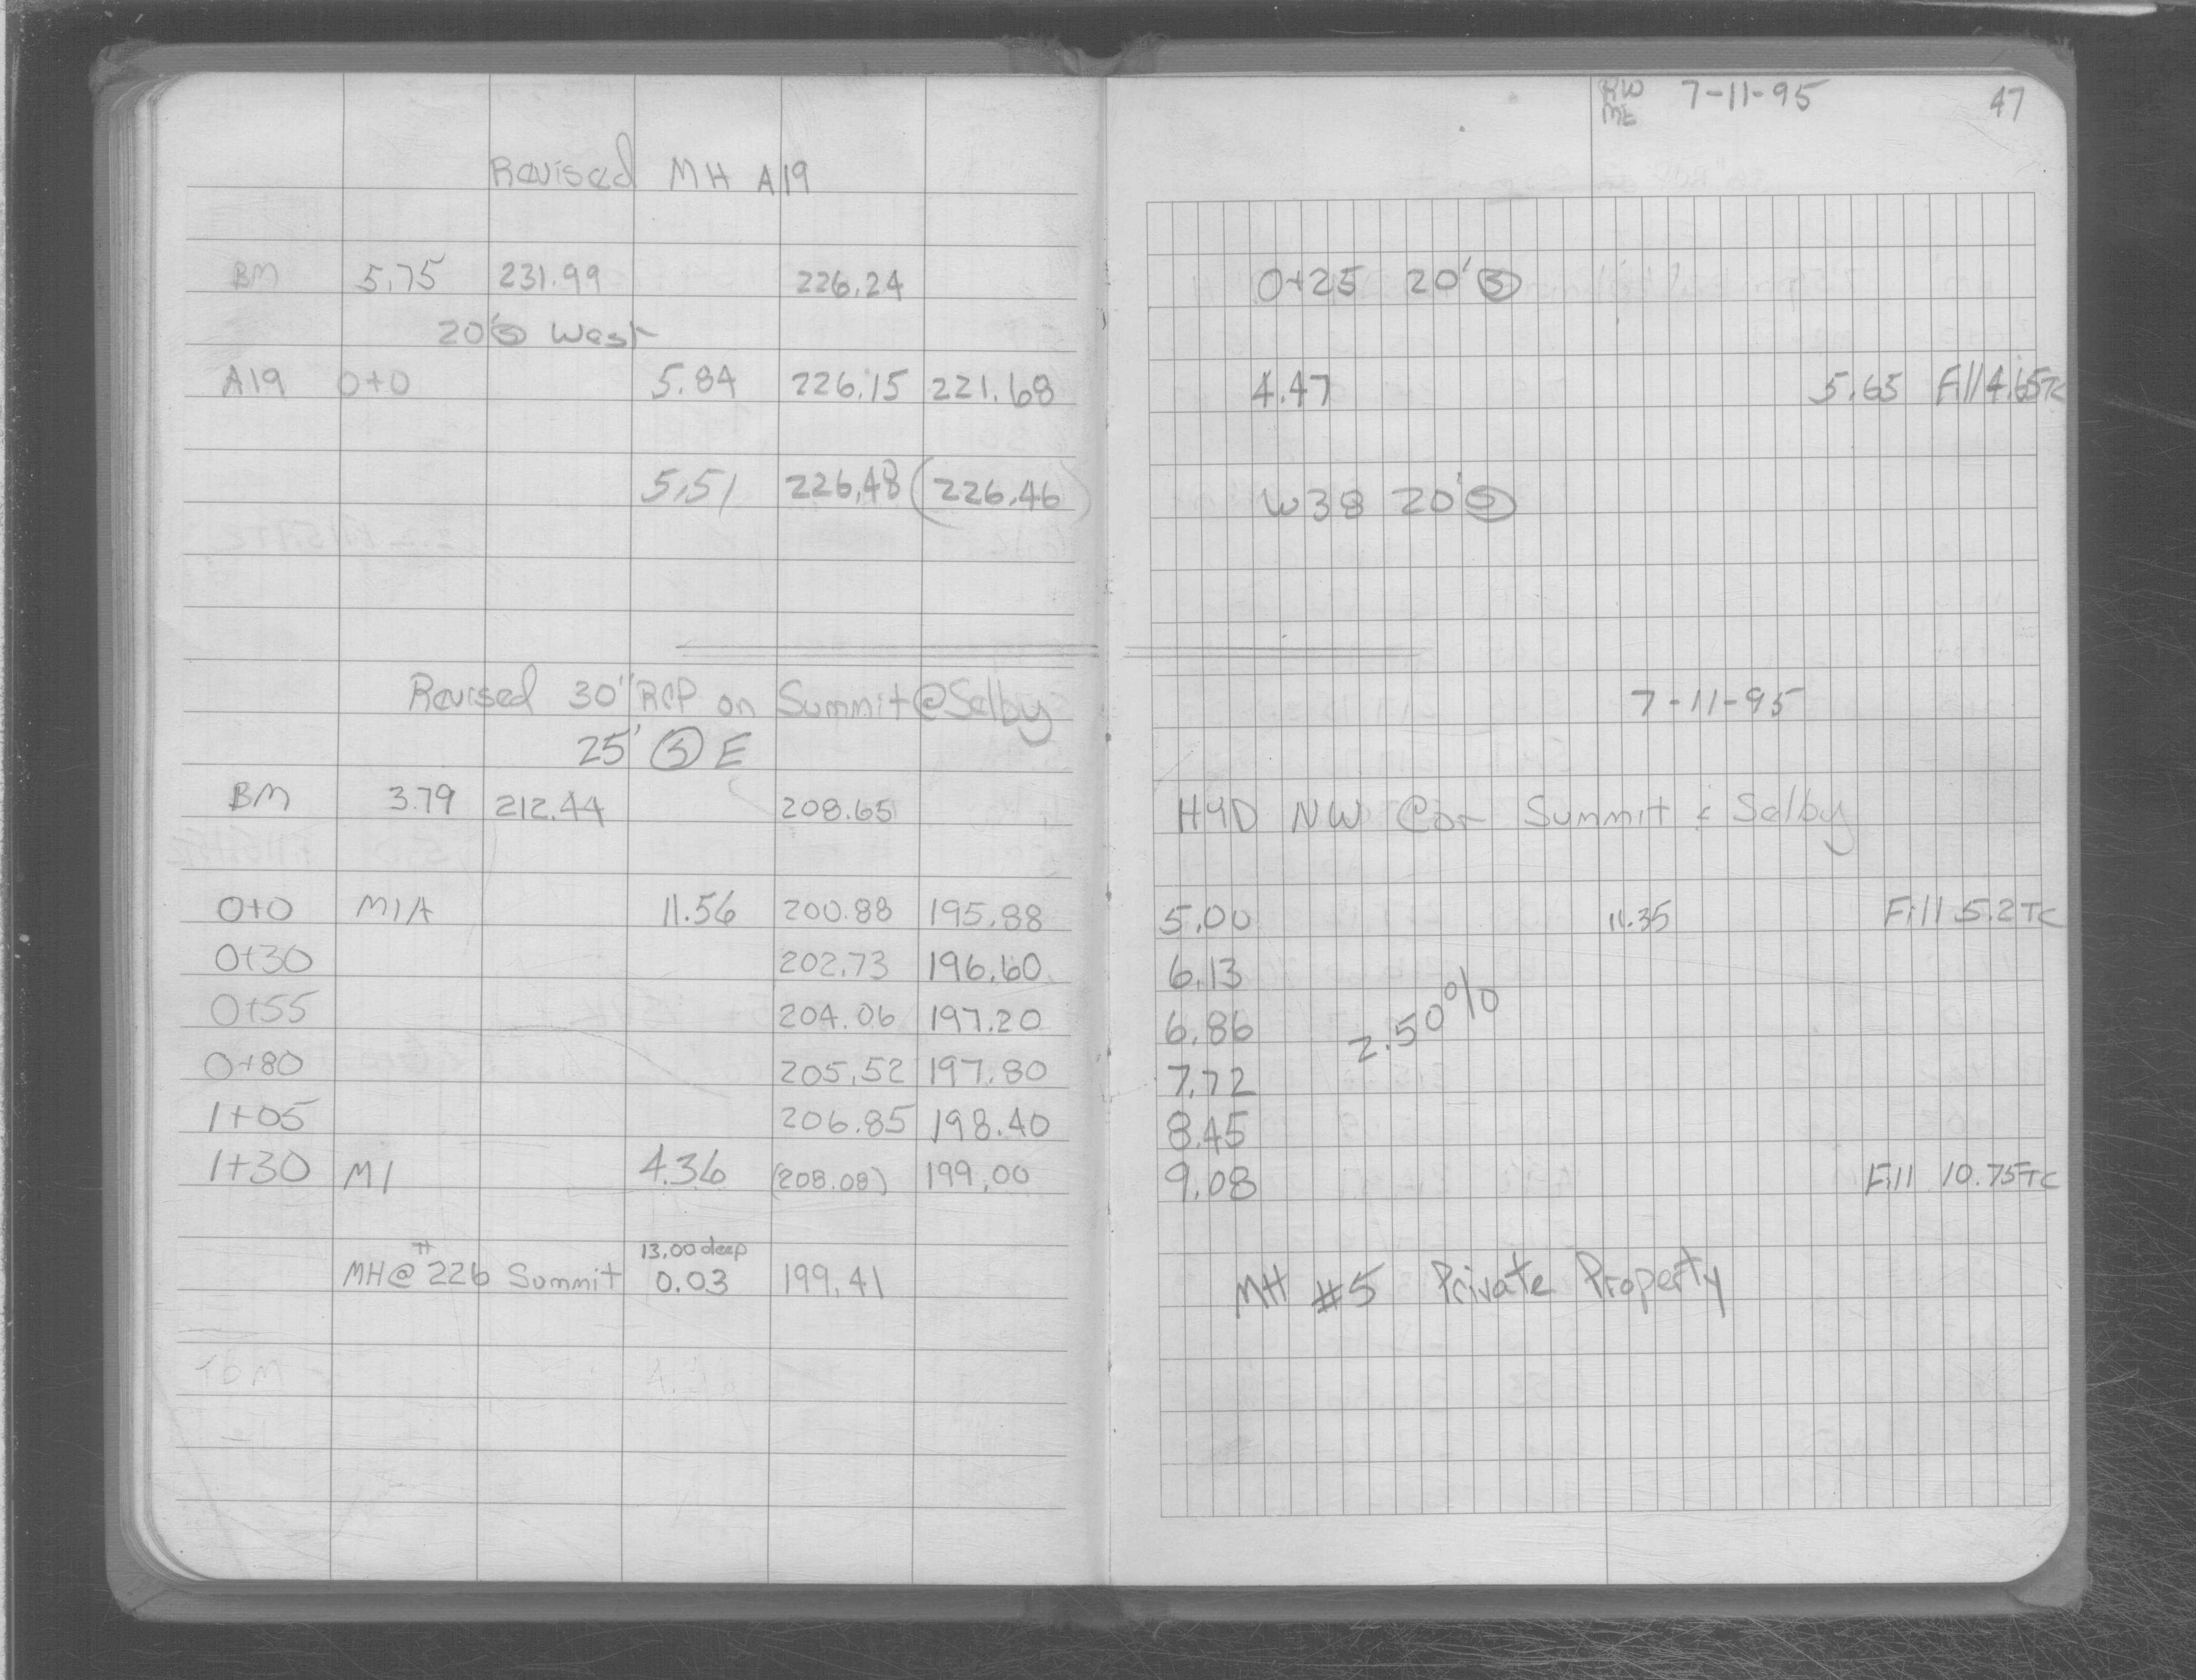 Revised MH A19
BM 5.75 231.99 226.24
20' Ⓢ West
A19 0+0 5.84 226.15 221.68
5.51 226.48 (226.46)
Revised 30" RCP on Summit @ Selby
25' Ⓢ E
BM 3.79 212.44 208.65
0+0 M1A 11.56 200.88 195.88
0+30 202.73 196.60
0+55 204.06 197.20
0+80 205.52 197.80
1+05 206.85 198.40
1+30 M1 4.36 (208.08) 199.00
13.00 deep
MH @ 226 Summit 0.03 199.41
TBM
RW 7-11-95 47
0+25 20' Ⓢ
4.47 5.65 Fill 4.65 TC
W38 20' Ⓢ
7-11-95
HYD NW Cor Summit & Selby
5.00 11.35 Fill 5.2 TC
6.13
6.86 2.50%
7.72
8.45
9.08 Fill 10.75 TC
MH #5 Private Property